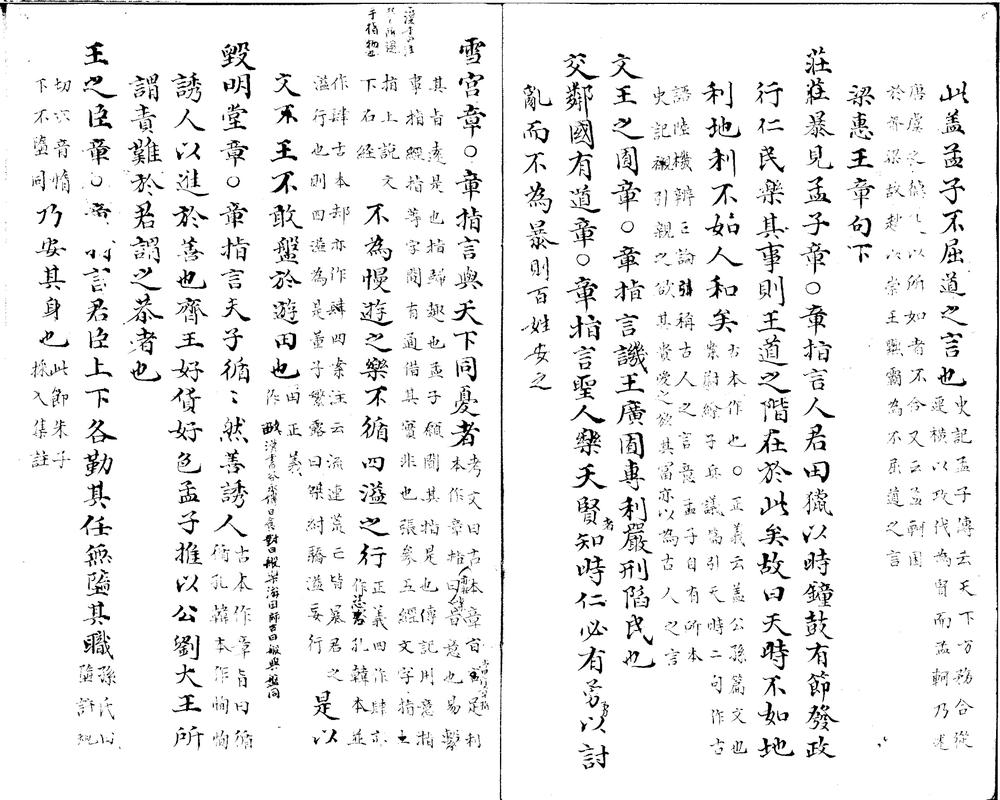 此盖孟子不屈道之言也 史記孟子傳云天下方務合從
連横以攻伐為賢而孟軻乃述
唐虞之 以所如者不合又云孟軻困
於齊梁故赵 以崇王黜霸為不屈道之言
梁惠王章句下
莊莊暴見孟子章○章指言人君田獵以時鐘鼓有節發政
行仁民樂其事則王道之階在於此矣故曰天時不如地
利地利不如人和矣 古本作也○正義云盖公孫篇文也
案尉繚子兵議篇引天時二句作古
語陸機辨亡論 稱古人之言意孟子自有所本
史記 引親之欲其貴愛之欲其富亦以為古人之言
文王之囿章○章指言譏王廣囿專利嚴刑陷民也
交鄰國有道章○章指言聖人樂天賢者知時仁必有勇勇以討
亂而不為暴則百姓安之
雪宫章○章指言與天下同憂者 考文曰古本章言
本作章指曰 意也易繫
其旨遠是也指歸趣也孟子願聞其指是也傳記用意指
事指經指等字間有通借其實非也張參五經文字指
指上説文
下石經 不為慢遊之樂不循四溢之行 正義四作肆亦
作恣孔韓本並
作肆古本却亦作肆四案注云流連荒亡皆暴君之
溢行也則四溢為是董子繁露曰桀紂驕溢妄行 是以
文王不敢盤於遊田也 田正義
作畋
毁明堂章○章指言夫子循〻然善誘人 古本作章旨曰循
循孔韓本作恂恂
誘人以進於善也齊王好貨好色孟子推以公劉大王所
謂責難於君謂之恭者也
王之臣章○章指言君臣上下各勤其任無墮其職 孫氏
墮許規
切 音惰
下不墮同 乃安其身也 此節朱子
採入集註